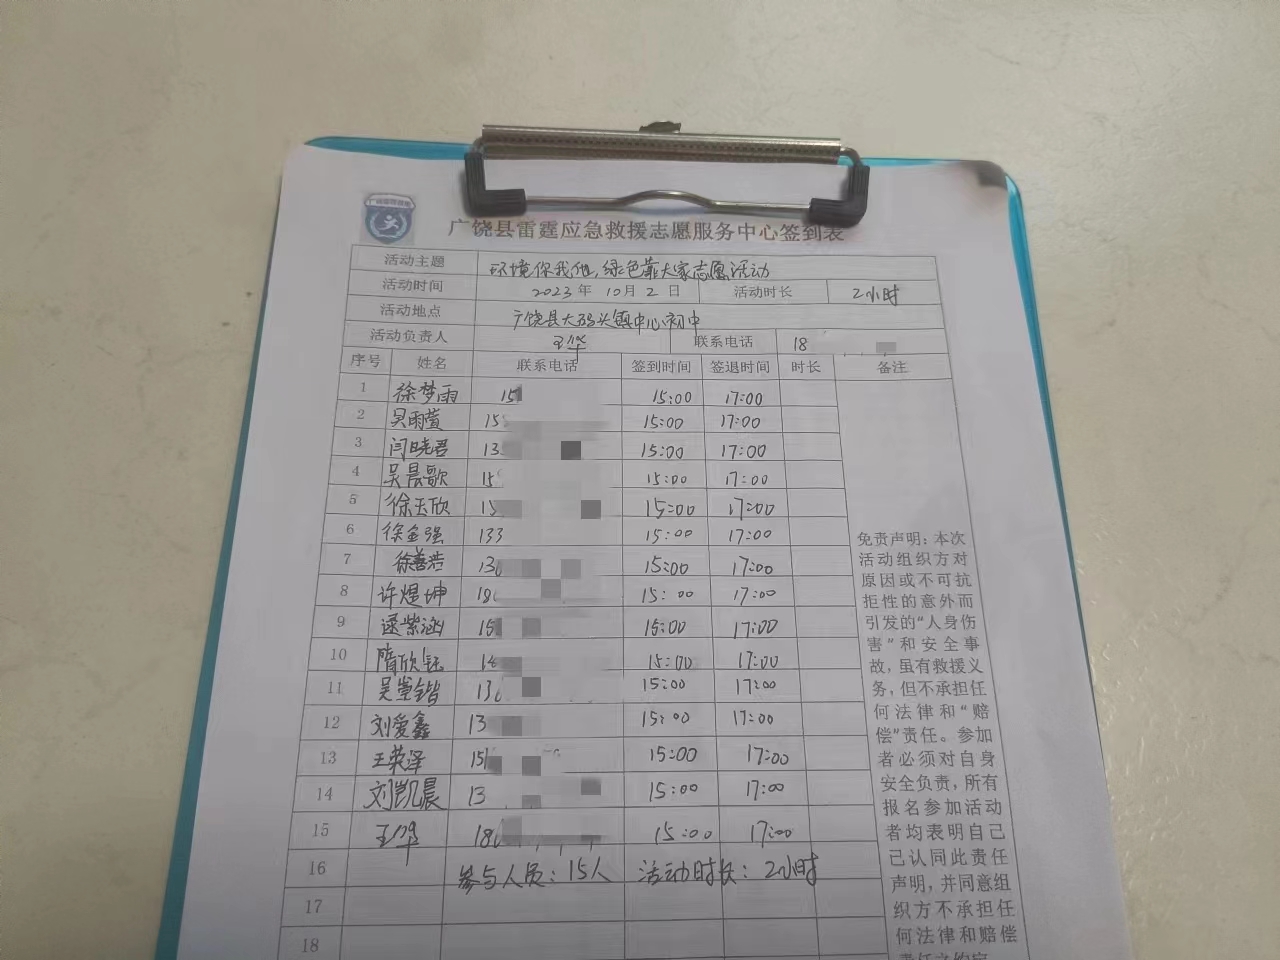 广饶县雷霆应急救援志愿服务中心签到表
活动主题 环境你我他,绿色靠大家志愿活动
活动时间 2023年10月2日 活动时长 2小时
活动地点 广饶县大码头镇中心初中
活动负责人 王华 联系电话 18
序号 姓名 联系电话 签到时间 签退时间 时长 备注
1 徐梦雨 15 15:00 17:00
2 吴雨萱 15 15:00 17:00
3 闫晓君 13 15:00 17:00
4 吴晨歌 15 15:00 17:00
5 徐玉欣 15 15:00 17:00
6 徐金强 133 15:00 17:00
7 徐善浩 13 15:00 17:00
8 许煜坤 18 15:00 17:00
9 逯紫涵 15 15:00 17:00
10 隋欣钰 15:00 17:00
11 吴 锴 13 15:00 17:00
12 刘爱鑫 13 15:00 17:00
13 王荣泽 15 15:00 17:00
14 刘凯晨 13 15:00 17:00
15 王华 18 15:00 17:00
16 参与人员:15人 活动时长:2小时
17
18
免责声明:本次
活动组织方对
原因或不可抗
拒性的意外而
引发的“人身伤
害”和安全事
故,虽有救援义
务,但不承担任
何法律和“赔
偿”责任。参加
者必须对自身
安全负责,所有
报名参加活动
者均表明自己
已认同此责任
声明,并同意组
织方不承担任
何法律和赔偿
责任之约定